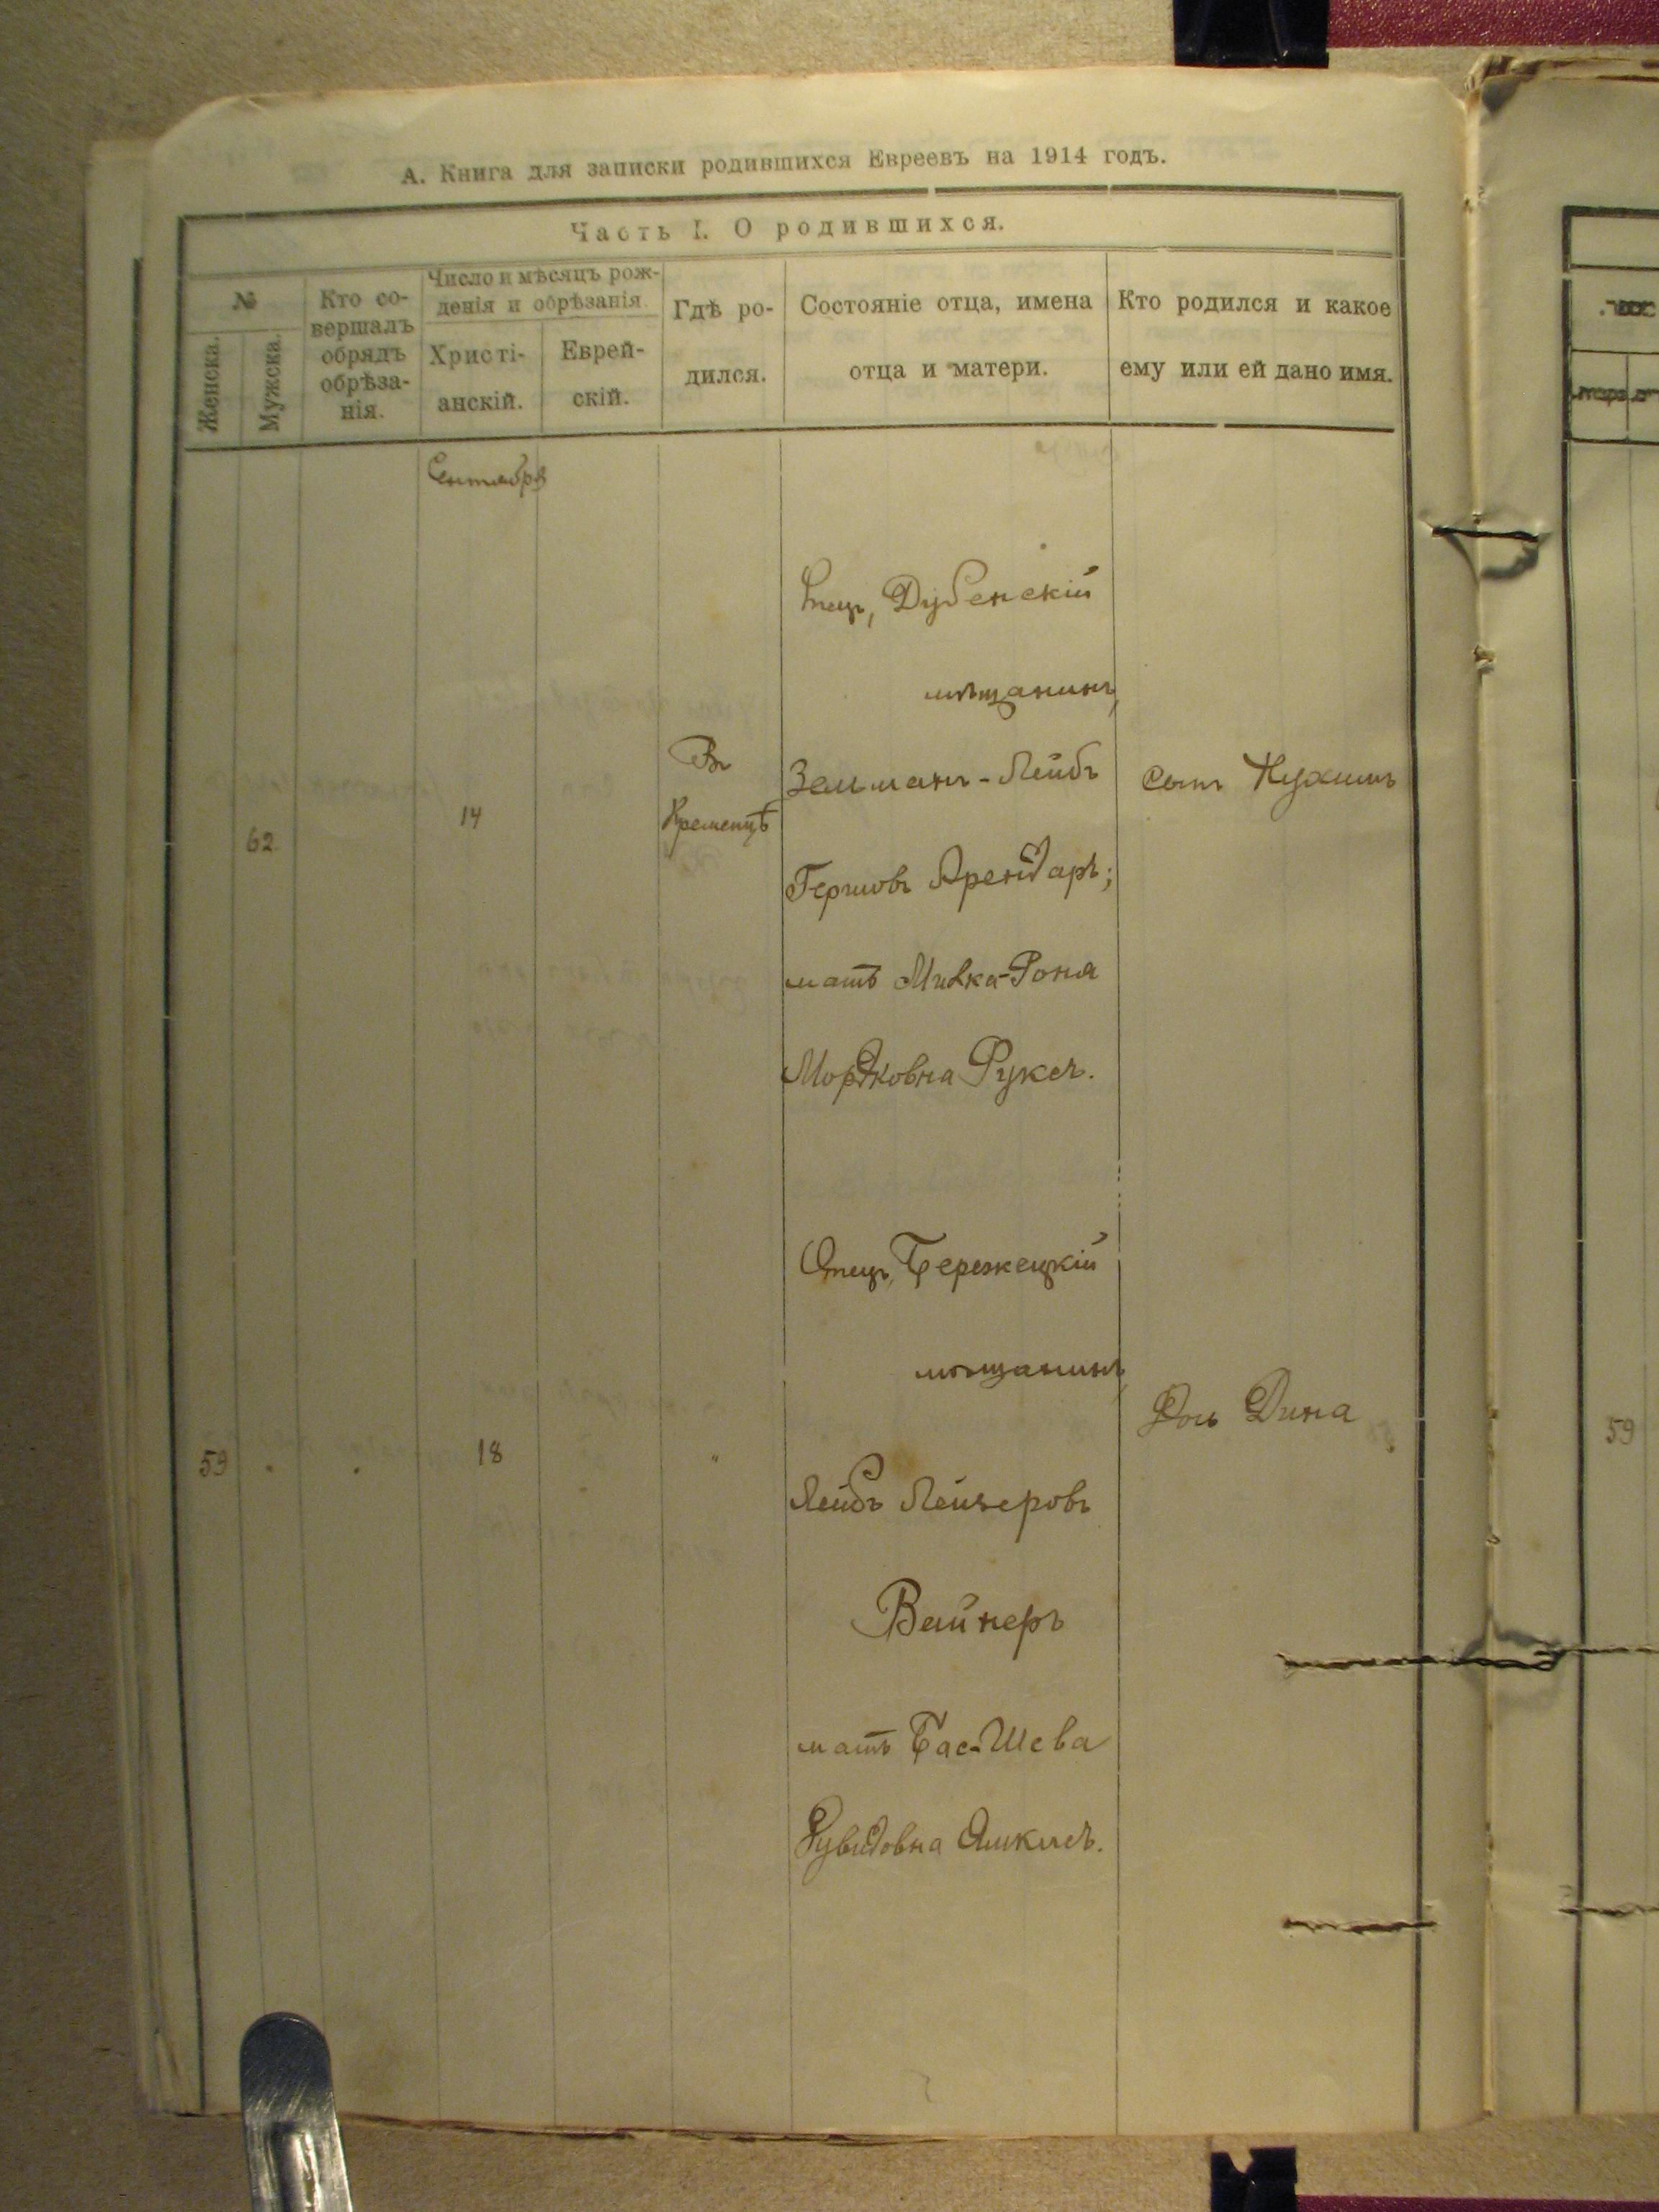 А. Книга для записки родившихся Евреевъ на 1914 годъ.
Часть I. О родившихся.
№
Женска.
Мужска.
Кто со-
вершалъ
обрядъ
обрѣза-
нія.
Число и мѣсяцъ рож-
денія и обрѣзанія.
Христі-
анскій.
Еврей-
скій.
Гдѣ ро-
дился.
Состояніе отца, имена
отца и матери.
Кто родился и какое
ему или ей дано имя.
Сентября
62
14
Въ
Кременцѣ
Отецъ, Дубенскій
мѣщанинъ,
Зельманъ-Лейбъ
Гершовъ Арендаръ;
мать Мивка-Роня
Мордковна Руксъ.
Сынъ Нухимъ
59
18
"
Отецъ, Бережецкій
мѣщанинъ,
Лейбъ Лейзеровъ
Вайнеръ
мать Бас-Шева
Рувидовна
Дочь Дина
59